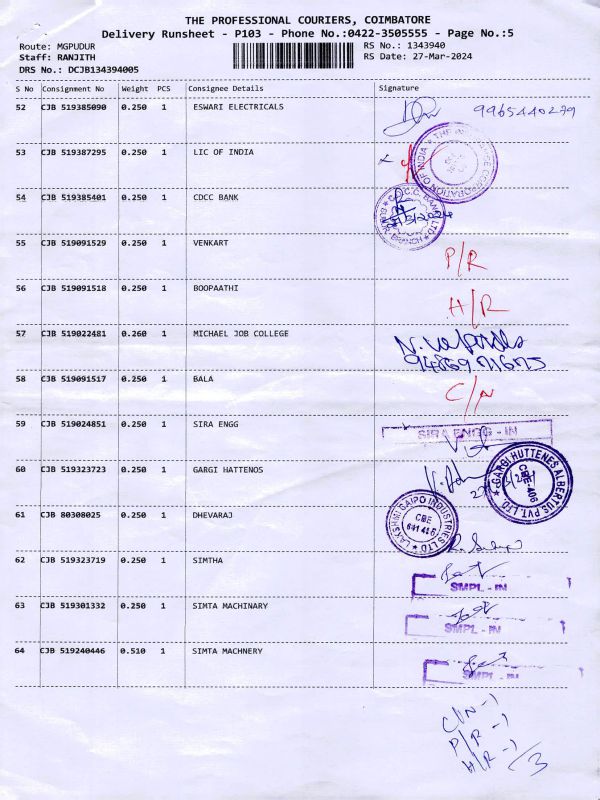 THE PROFESSIONAL COURIERS, COIMBATORE
Delivery Runsheet - P103 - Phone No.:0422-3505555 - Page No.:5
Route: MGPUDUR RS No.: 1343940
Staff: RANJITH RS Date: 27-Mar-2024
DRS No.: DCJB134394005
S No Consignment No Weight PCS Consignee Details Signature
52 CJB 519385090 0.250 1 ESWARI ELECTRICALS 9965440279
53 CJB 519387295 0.250 1 LIC OF INDIA
54 CJB 519385401 0.250 1 CDCC BANK
55 CJB 519091529 0.250 1 VENKART P/R
56 CJB 519091518 0.250 1 BOOPAATHI H/R
57 CJB 519022481 0.260 1 MICHAEL JOB COLLEGE
58 CJB 519091517 0.250 1 BALA C/N
59 CJB 519024851 0.250 1 SIRA ENGG SIRA ENGG - IN
60 CJB 519323723 0.250 1 GARGI HATTENOS GARGI HUTTENES ALBERTUS PVT. LTD CBE 406
61 CJB 80308025 0.250 1 DHEVARAJ LAKSHMI CAIPO INDUSTRIES LTD CBE 641 406
62 CJB 519323719 0.250 1 SIMTHA SMPL - IN
63 CJB 519301332 0.250 1 SIMTA MACHINARY SMPL - IN
64 CJB 519240446 0.510 1 SIMTA MACHNERY SMPL - IN
C/N - 1
P/R - 1
H/R - 1
/3